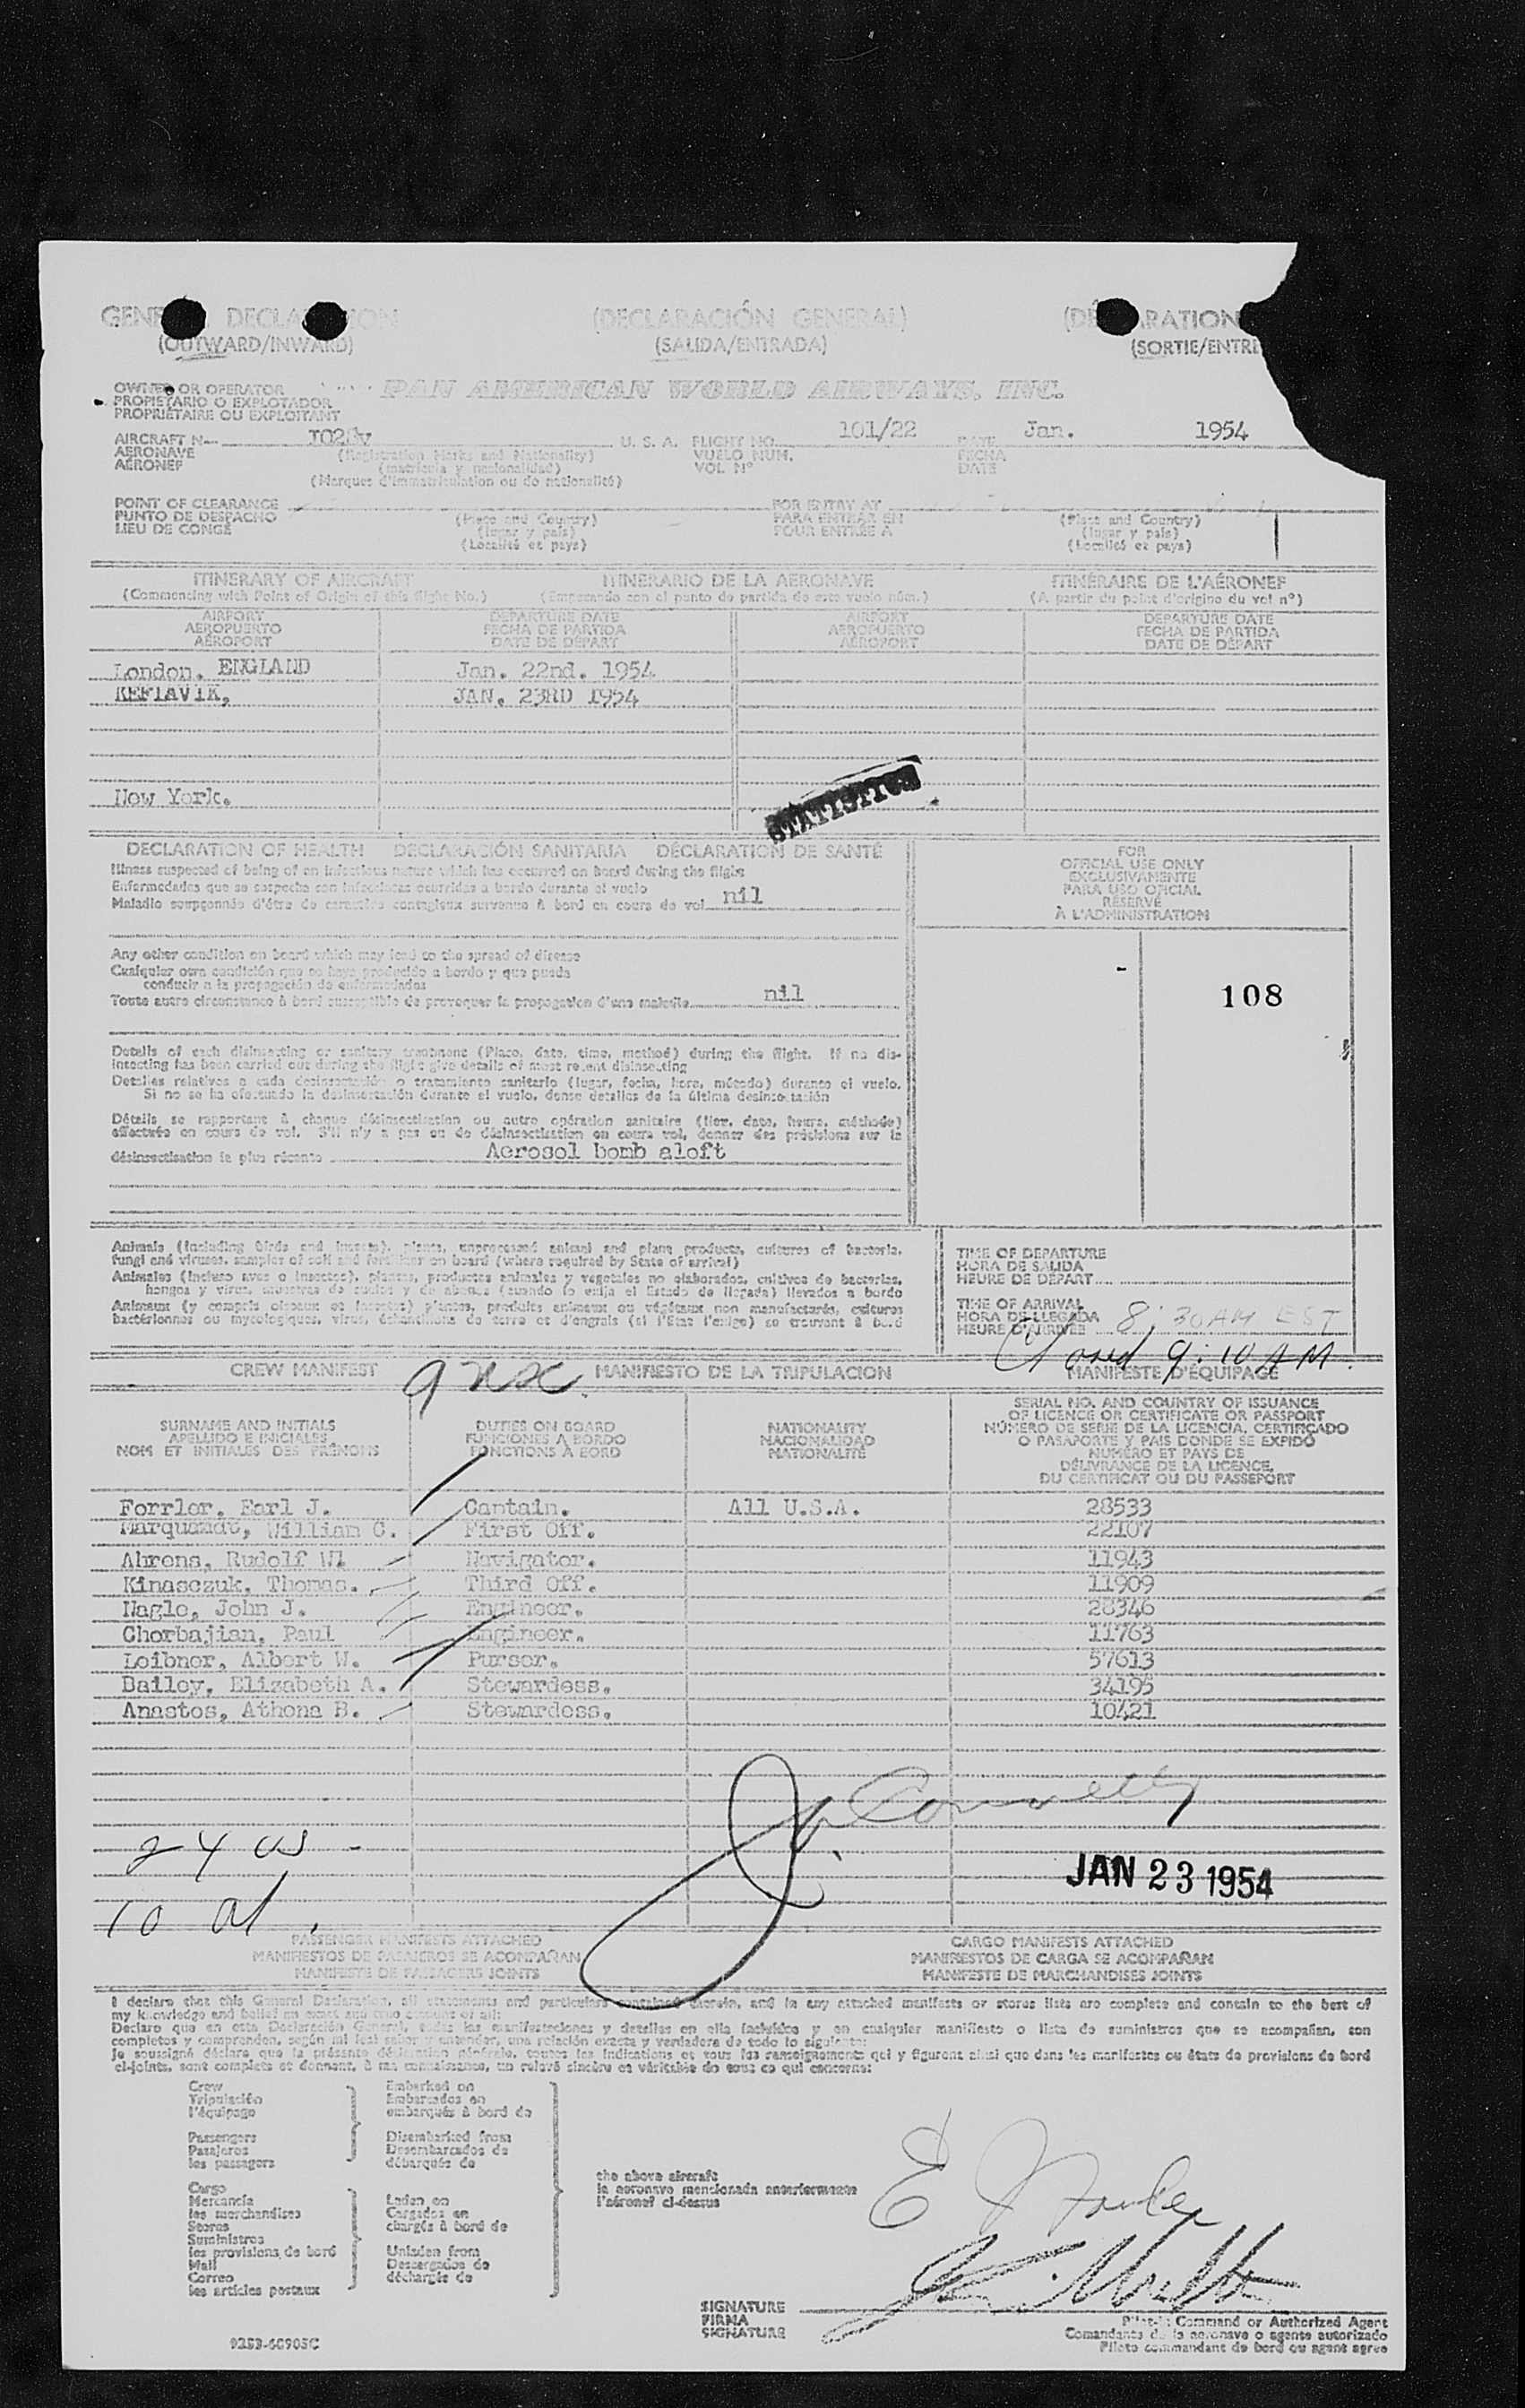 GENE DECLA ION (DECLARACIÓN GENERAL) (DÉ ARATION
(OUTWARD/INWARD) (SALIDA/ENTRADA) (SORTIE/ENTRÉ
OWNER OR OPERATOR PAN AMERICAN WORLD AIRWAYS, INC.
PROPIETARIO O EXPLOTADOR
PROPRIÉTAIRE OU EXPLOITANT
AIRCRAFT N U. S. A. FLIGHT NO. 101/22 DATE Jan. 1954
AERONAVE (Registration Marks and Nationality) VUELO NÚM. FECHA
AÉRONEF (matrícula y nacionalidad) VOL Nº DATE
(Marques d'immatriculation ou de nationalité)
POINT OF CLEARANCE FOR ENTRY AT
PUNTO DE DESPACHO (Place and Country) PARA ENTRAR EN (Place and Country)
LIEU DE CONGÉ (lugar y país) POUR ENTRÉE À (lugar y país)
(Localité et pays) (Localité et pays)
ITINERARY OF AIRCRAFT ITINERARIO DE LA AERONAVE ITINÉRAIRE DE L'AÉRONEF
(Commencing with Point of Origin of this flight No.) (Empezando con el punto de partida de este vuelo núm.) (A partir du point d'origine du vol nº)
AIRPORT DEPARTURE DATE AIRPORT DEPARTURE DATE
AEROPUERTO FECHA DE PARTIDA AEROPUERTO FECHA DE PARTIDA
AÉROPORT DATE DE DÉPART AÉROPORT DATE DE DÉPART
London. ENGLAND Jan. 22nd. 1954
KEFLAVIK, JAN. 23RD 1954
STATISTICS
New York.
DECLARATION OF HEALTH DECLARACIÓN SANITARIA DÉCLARATION DE SANTÉ
Illness suspected of being of an infectious nature which has occurred on board during the flight
Enfermedades que se sospecha son infecciosas ocurridas a bordo durante el vuelo
Maladie soupçonnée d'être de caractère contagieux survenue à bord en cours de vol nil
FOR
OFFICIAL USE ONLY
EXCLUSIVAMENTE
PARA USO OFICIAL
RÉSERVÉ
À L'ADMINISTRATION
Any other condition on board which may lead to the spread of disease
Cualquier otra condición que se haya producido a bordo y que pueda
conducir a la propagación de enfermedades
Toute autre circonstance à bord susceptible de provoquer la propagation d'une maladie nil
108
Details of each disinsecting or sanitary treatment (Place, date, time, method) during the flight. If no dis-
insecting has been carried out during the flight give details of most recent disinsecting
Detalles relativos a cada desinsectación o tratamiento sanitario (lugar, fecha, hora, método) durante el vuelo.
Si no se ha efectuado la desinsectación durante el vuelo, dense detalles de la última desinsectación
Détails se rapportant à chaque désinsectisation ou autre opération sanitaire (lieu, date, heure, méthode)
effectuée en cours de vol. S'il n'y a pas eu de désinsectisation en cours vol, donner des précisions sur la
désinsectisation la plus récente Aerosol bomb aloft
Animals (including birds and insects), plants, unprocessed animal and plant products, cultures of bacteria,
fungi and viruses, samples of soil and fertilizer on board (where required by State of arrival)
Animales (incluso aves o insectos), plantas, productos animales y vegetales no elaborados, cultivos de bacterias,
hongos y virus, muestras de suelos y de abonos (cuando lo exija el Estado de llegada) llevados a bordo
Animaux (y compris oiseaux et insectes) plantes, produits animaux ou végétaux non manufacturés, cultures
bactériennes ou mycologiques, virus, échantillons de terre et d'engrais (si l'État l'exige) se trouvant à bord
TIME OF DEPARTURE
HORA DE SALIDA
HEURE DE DÉPART
TIME OF ARRIVAL
HORA DE LLEGADA
HEURE D'ARRIVÉE 8:30 AM EST
9:10 AM.
CREW MANIFEST MANIFIESTO DE LA TRIPULACION MANIFESTE D'ÉQUIPAGE
SURNAME AND INITIALS DUTIES ON BOARD NATIONALITY SERIAL NO. AND COUNTRY OF ISSUANCE
APELLIDO E INICIALES FUNCIONES A BORDO NACIONALIDAD OF LICENCE OR CERTIFICATE OR PASSPORT
NOM ET INITIALES DES PRÉNOMS FONCTIONS À BORD NATIONALITÉ NÚMERO DE SERIE DE LA LICENCIA, CERTIFICADO
O PASAPORTE Y PAIS DONDE SE EXPIDÓ
NUMÉRO ET PAYS DE
DÉLIVRANCE DE LA LICENCE,
DU CERTIFICAT OU DU PASSEPORT
Forrler, Earl J. Captain. All U.S.A. 28533
Marquandt, William C. First Off. 22107
Ahrens, Rudolf W. Navigator. 11943
Kinasczuk, Thomas. Third Off. 11909
Nagle, John J. Engineer. 28346
Chorbajian, Paul Engineer. 11763
Leibner, Albert W. Purser. 57613
Bailey, Elizabeth A. Stewardess. 34195
Anastos, Athena B. Stewardess. 10421
24 US
10 al.
JAN 23 1954
PASSENGER MANIFESTS ATTACHED CARGO MANIFESTS ATTACHED
MANIFIESTOS DE PASAJEROS SE ACOMPAÑAN MANIFIESTOS DE CARGA SE ACOMPAÑAN
MANIFESTE DE PASSAGERS JOINTS MANIFESTE DE MARCHANDISES JOINTS
I declare that this General Declaration, all statements and particulars contained therein, and in any attached manifests or stores lists are complete and contain to the best of
my knowledge and belief an exact and true account of all:
Declaro que en esta Declaración General, todas las manifestaciones y detalles en ella incluídos y en cualquier manifiesto o lista de suministros que se acompañan, son
completos y comprenden, según mi leal saber y entender, una relación exacta y verdadera de todo lo siguiente:
Je soussigné déclare que la présente déclaration générale, toutes les indications et tous les renseignements qui y figurent ainsi que dans les manifestes ou états de provisions de bord
ci-joints, sont complets et donnent, à ma connaissance, un relevé sincère et véritable de tous ce qui concerne:
Crew Embarked on
Tripulación Embarcados en
l'équipage embarqués à bord de
Passengers Disembarked from
Pasajeros Desembarcados de
les passagers débarqués de
Cargo
Mercancía Laden on
les marchandises Cargados en
Stores chargés à bord de
Suministros
les provisions de bord Unladen from
Mail Descargados de
Correo déchargés de
les articles postaux
the above aircraft
la aeronave mencionada anteriormente
l'aéronef ci-dessus
SIGNATURE
FIRMA
SIGNATURE
Pilot-in Command or Authorized Agent
Comandante de la aeronave o agente autorizado
Pilote commandant de bord ou agent agréé